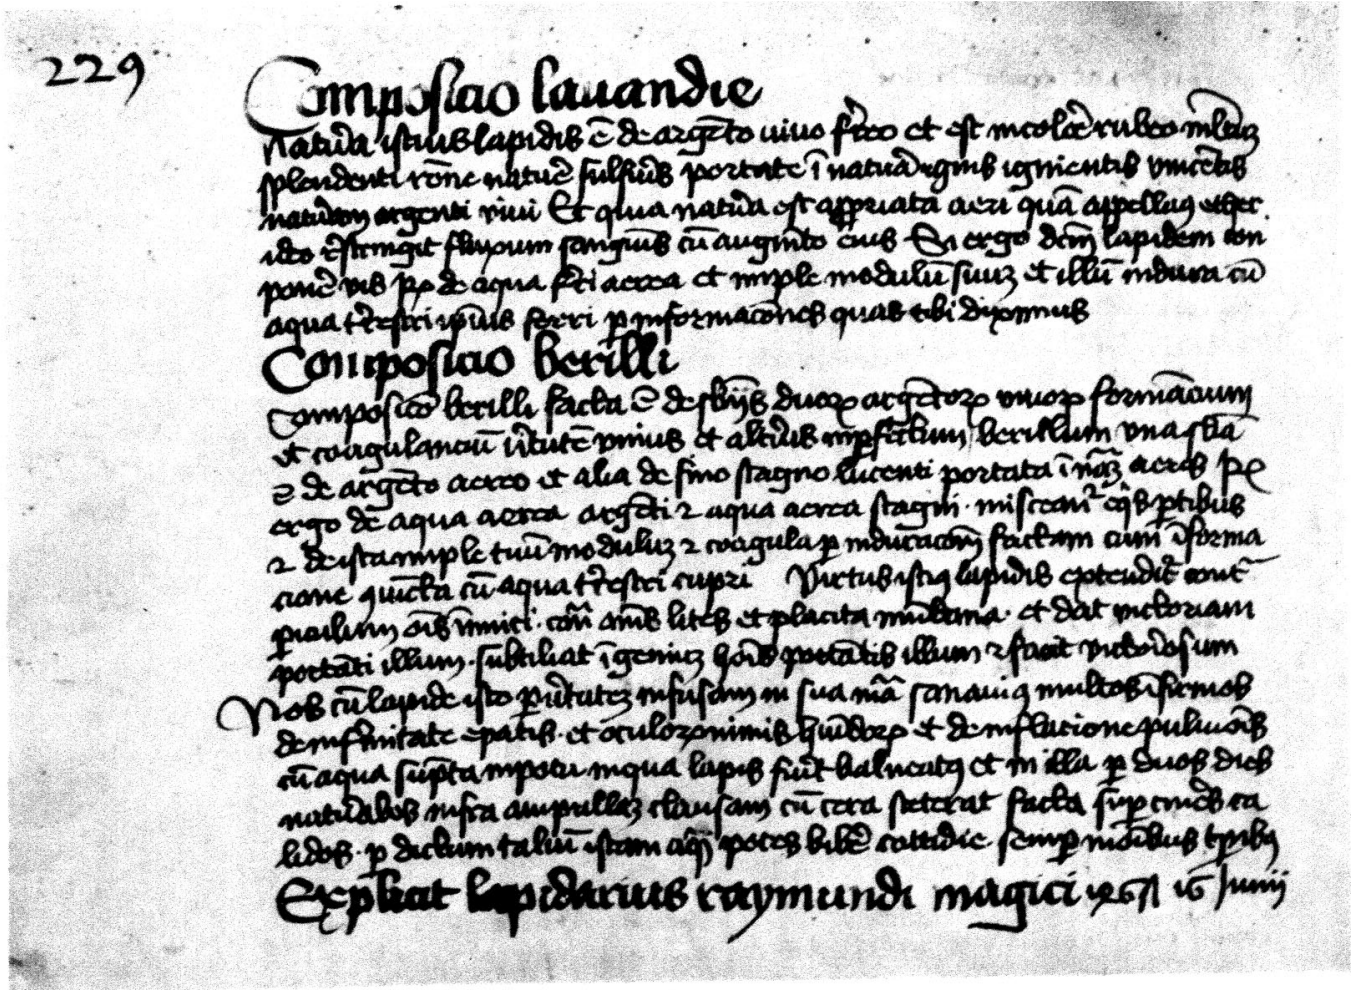 229
Composicio lauandie
natura istius lapidis ē de argēto uiuo f'reo et est in colore rubeo
splendenti rōne nature sulfuris portate ī natura ignis ignientis
naturam argenti viui Et quia natura est appriata aeri quā appellam9 ether
ideo restringit fluxum sanguinis cū augmēto eius Si ergo dcm lapidem con
ponē vis Rx de aqua f'ri aerea et imple modulū suuz et illū indura cū
aqua t'restri ipius ferri p informacōnes quas tibi diximus
Composicio berilli
composicō berilli facta ē de sbijs duorꝝ argētorꝝ viuorꝝ
et coagulanciū v'tutē vnius et alterius berillum vna sbā
ē de argēto aereo et alia de fino stagno lucenti portata ī aeris Rx
ergo de aqua aerea argēti ⁊ aqua aerea stagni · misceant' eqis ptibus
⁊ de ista imple tuū moduluz ⁊ coagula p factam cum īforma
cione cū aqua t'restri cupri Virtus isti9 lapidis extendit cont'
piculum inimici · omēs lites et placita mūdana · et dat victoriam
portāti illum · subtiliat īgeniuz hōis portātis illum ⁊ facit victoriosum
Nos cū lapide isto p v'tutez infusam in sua mā sanauim9 multos īfirmos
de infirmitate epatis · et oculorꝝ nimis et de inflacione pulmōis
cū aqua sūpta in potu in qua lapis fuit balneat9 et in illa p duos dies
naturales infra ampullaz clausam cū cera steterat facta sup cineres ca
lidos · p dictum taliū istam potes bibē cottidie semp
Explicit lapidarius raymundi magici 16 Junij